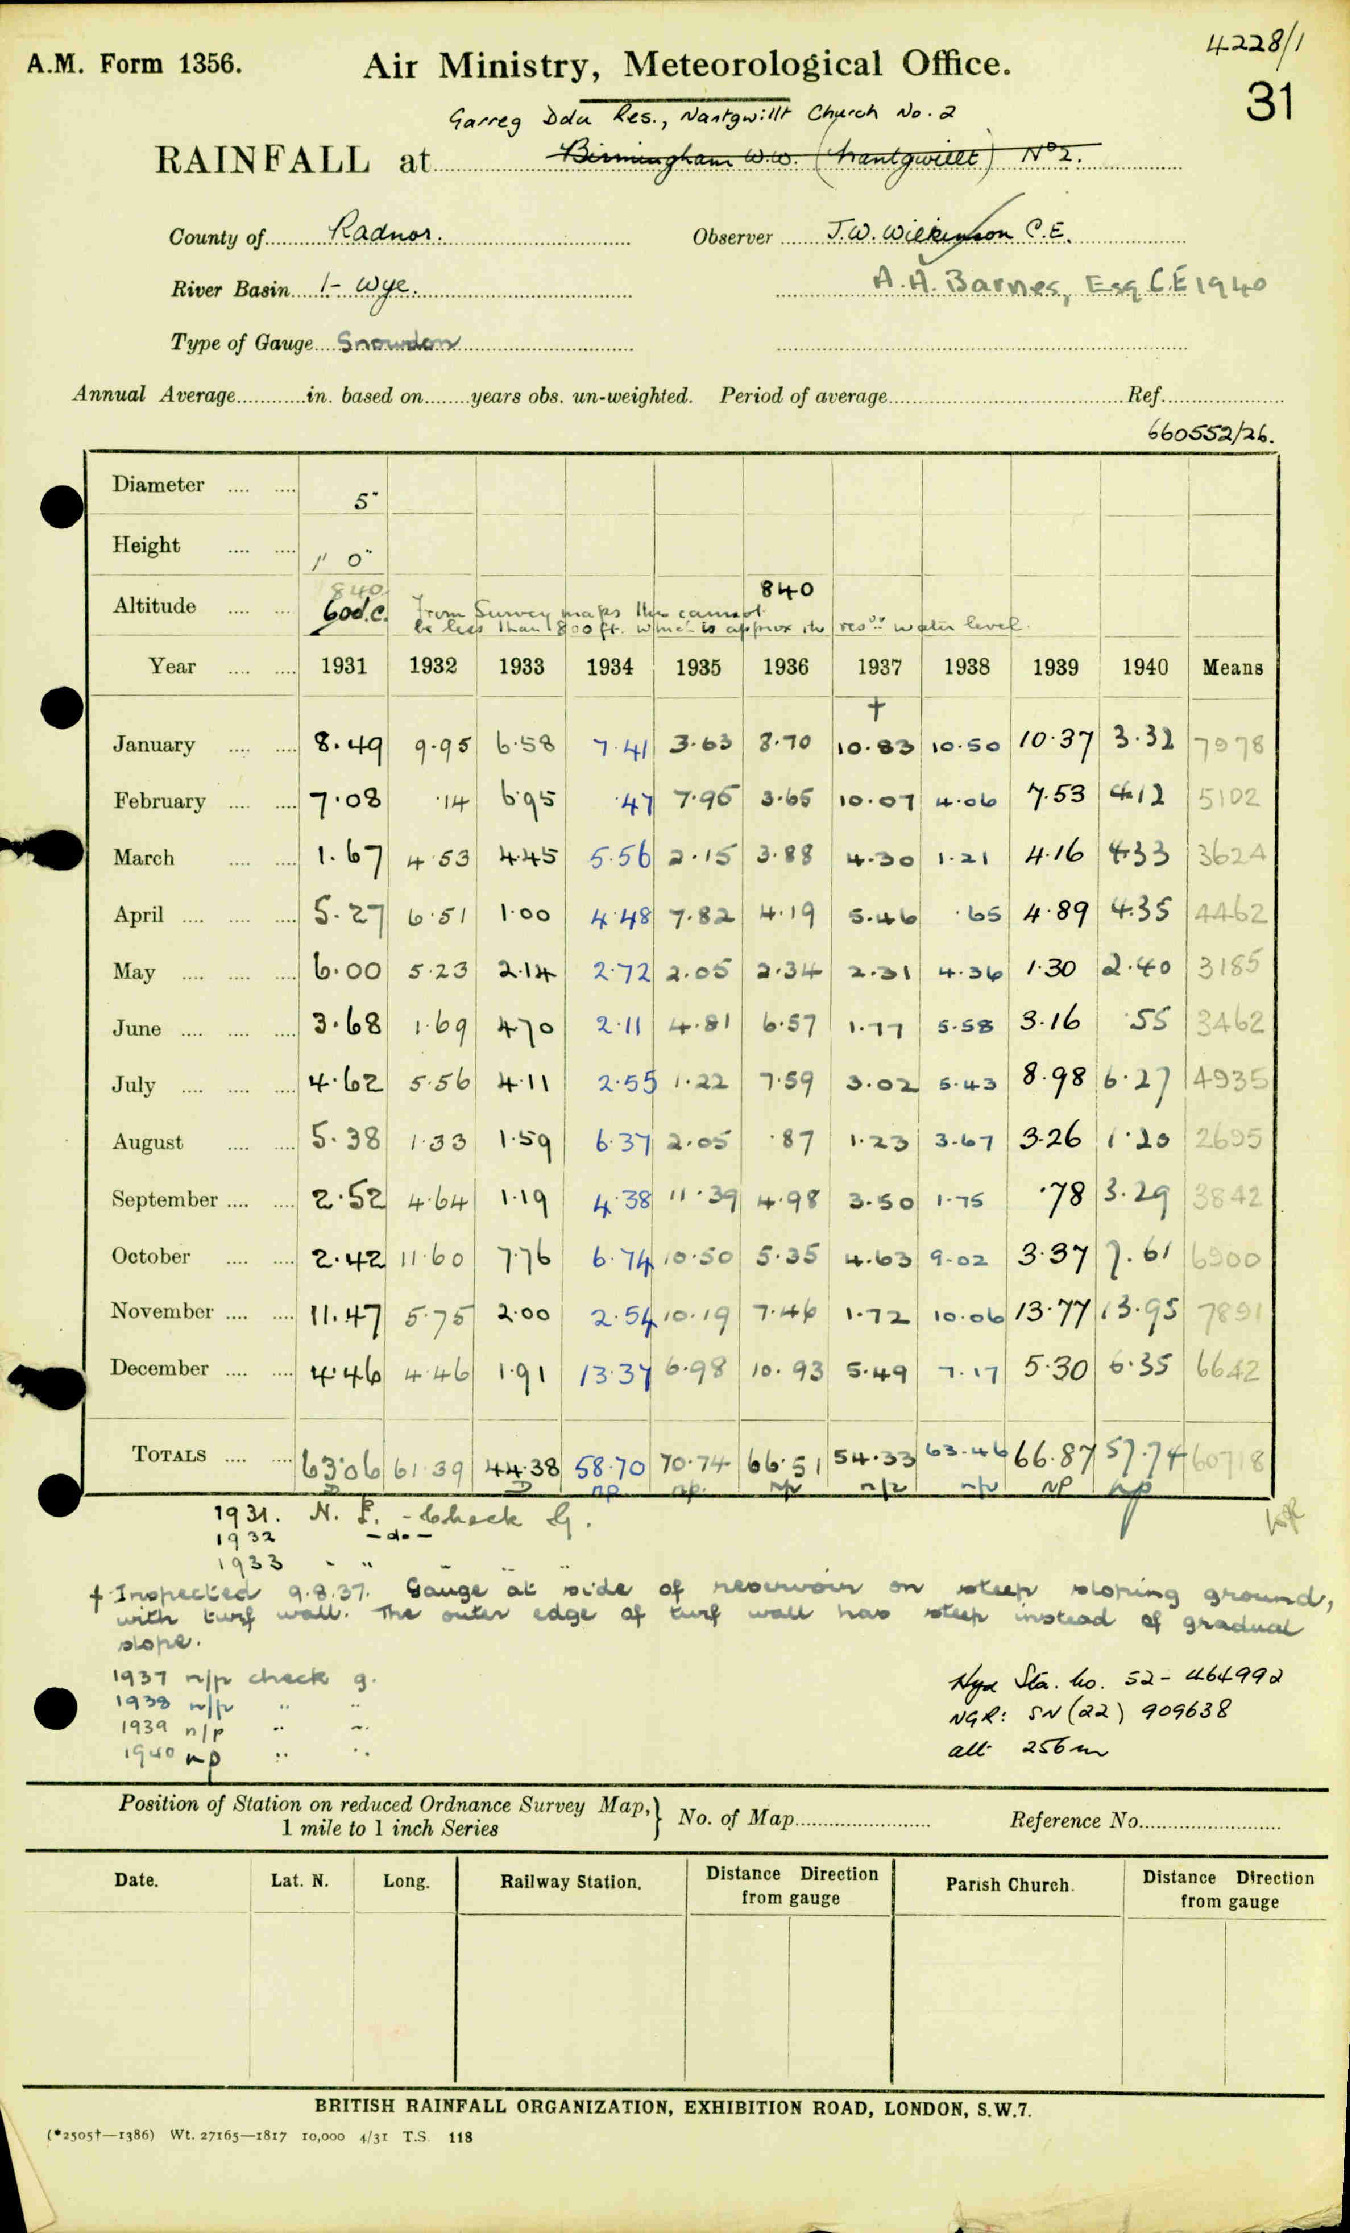 A.M. Form 1356.
Air Ministry, Meteorological Office.
4228/1
31
Garreg Ddu Res., Nantgwillt Church No. 2
RAINFALL at Birmingham W.W. (Nantgwillt) No 2.
County of Radnor. Observer J.W. Wilkinson C.E.
River Basin 1- Wye. A.A. Barnes, Esq C.E 1940
Type of Gauge Snowdon
Annual Average in. based on years obs. un-weighted. Period of average Ref.
660552/26.
Diameter 5"
Height 1' 0"
840 840
Altitude 600 d.c. From Survey maps this cannot
be less than 800 ft. which is approx the resr water level.
Year 1931 1932 1933 1934 1935 1936 1937 1938 1939 1940 Means
†
January 8.49 9.95 6.58 7.41 3.63 8.70 10.83 10.50 10.37 3.32 7978
February 7.08 .14 6.95 .47 7.95 3.65 10.07 4.06 7.53 4.12 5102
March 1.67 4.53 4.45 5.56 2.15 3.88 4.30 1.21 4.16 4.33 3624
April 5.27 6.51 1.00 4.48 7.82 4.19 5.46 .65 4.89 4.35 4462
May 6.00 5.23 2.14 2.72 2.05 2.34 2.31 4.36 1.30 2.40 3185
June 3.68 1.69 4.70 2.11 4.81 6.57 1.77 5.58 3.16 .55 3462
July 4.62 5.56 4.11 2.55 1.22 7.59 3.02 5.43 8.98 6.27 4935
August 5.38 1.33 1.59 6.37 2.05 .87 1.23 3.67 3.26 1.20 2695
September 2.52 4.64 1.19 4.38 11.39 4.98 3.50 1.75 .78 3.29 3842
October 2.42 11.60 7.76 6.74 10.50 5.35 4.63 9.02 3.37 7.61 6900
November 11.47 5.75 2.00 2.54 10.19 7.46 1.72 10.06 13.77 13.95 7891
December 4.46 4.46 1.91 13.37 6.98 10.93 5.49 7.17 5.30 6.35 6642
TOTALS 63.06 61.39 44.38 58.70 70.74 66.51 54.33 63.46 66.87 57.74 60718
np np. np n/p n/p NP np
1931. N. P. - Check G.
1932 -do-
1933 " " " "
† Inspected 9.8.37. Gauge at side of reservoir on steep sloping ground,
with turf wall. The outer edge of turf wall has steep instead of gradual
slope.
1937 n/p check g.
1938 n/p " "
1939 n/p " "
1940 np " "
Sta. No. 52-464992
NGR: SN (22) 909638
alt 256m
Position of Station on reduced Ordnance Survey Map, } No. of Map Reference No.
1 mile to 1 inch Series
Date. Lat. N. Long. Railway Station. Distance Direction Parish Church. Distance Direction
from gauge from gauge
BRITISH RAINFALL ORGANIZATION, EXHIBITION ROAD, LONDON, S.W.7.
(*2505†—1386) Wt. 27165—1817 10,000 4/31 T.S. 118